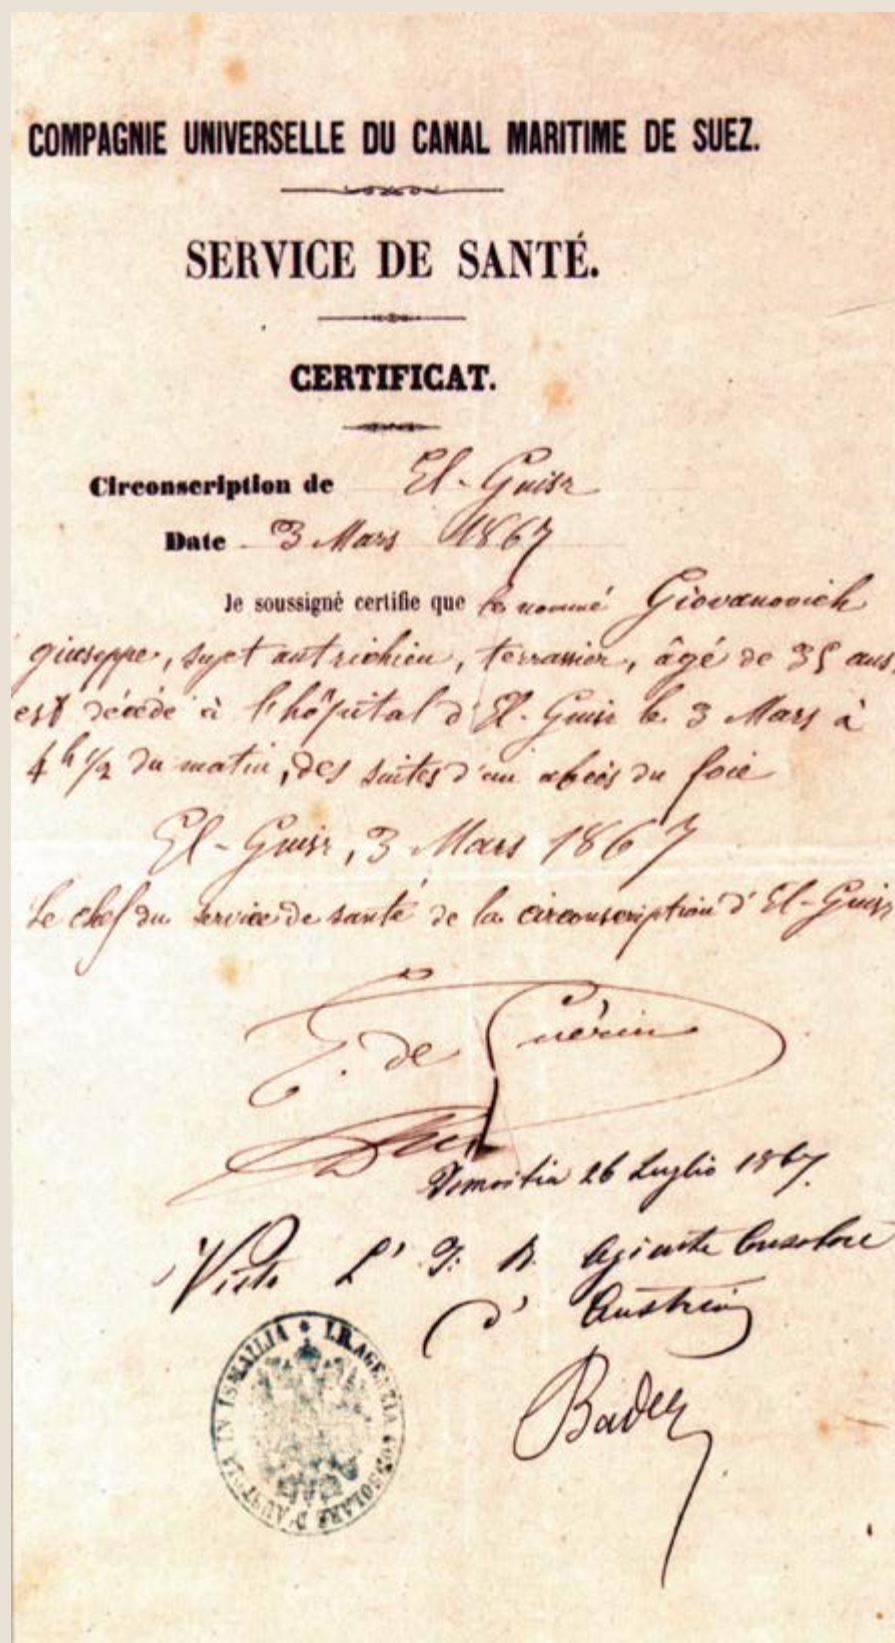 COMPAGNIE UNIVERSELLE DU CANAL MARITIME DE SUEZ.
SERVICE DE SANTÉ.
CERTIFICAT.
Circonscription de El-Guisr
Date 3 Mars 1867
Je soussigné certifie que le nommé Giovanovich
giuseppe, sujet autrichien, terrassier, âgé de 35 ans,
est décédé à l'hôpital d'El-Guisr le 3 Mars à
4 h 1/2 du matin, des suites d'un abcès du foie
El-Guisr, 3 Mars 1867
Le chef du service de santé de la circonscription d'El-Guisr
de Guérin
26 Luglio 1867.
Visto L' I: R. Agente Consolare
d' Austria
Bader
I. R. AGENZIA CONSOLARE D'AUSTRIA IN ISMAILIA